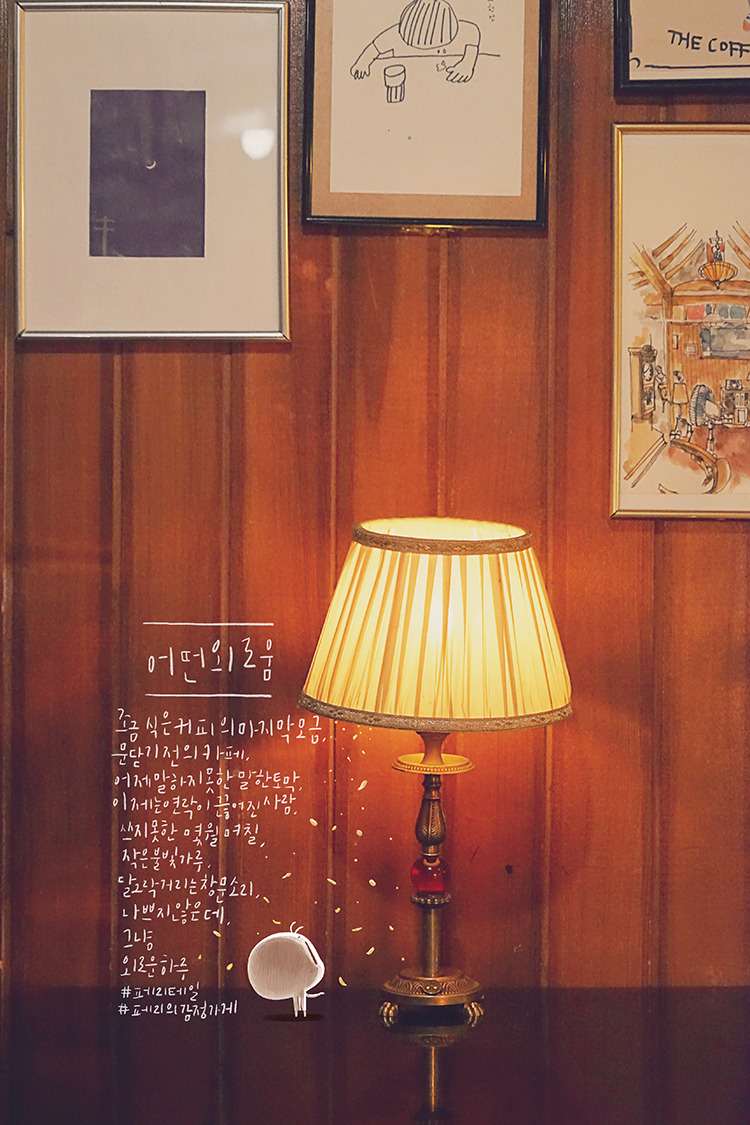 THE COFF
어떤 외로움
조금 식은 커피의 마지막 모금,
문닫기 전의 카페,
어제 말하지 못한 말 한토막,
이제는 연락이 끊어진 사람,
쓰지 못한 몇월 며칠,
작은 불빛가루,
달그락거리는 창문소리,
나쁘지 않은데,
그냥
외로운 하루
#페리테일
#페리의감정가게